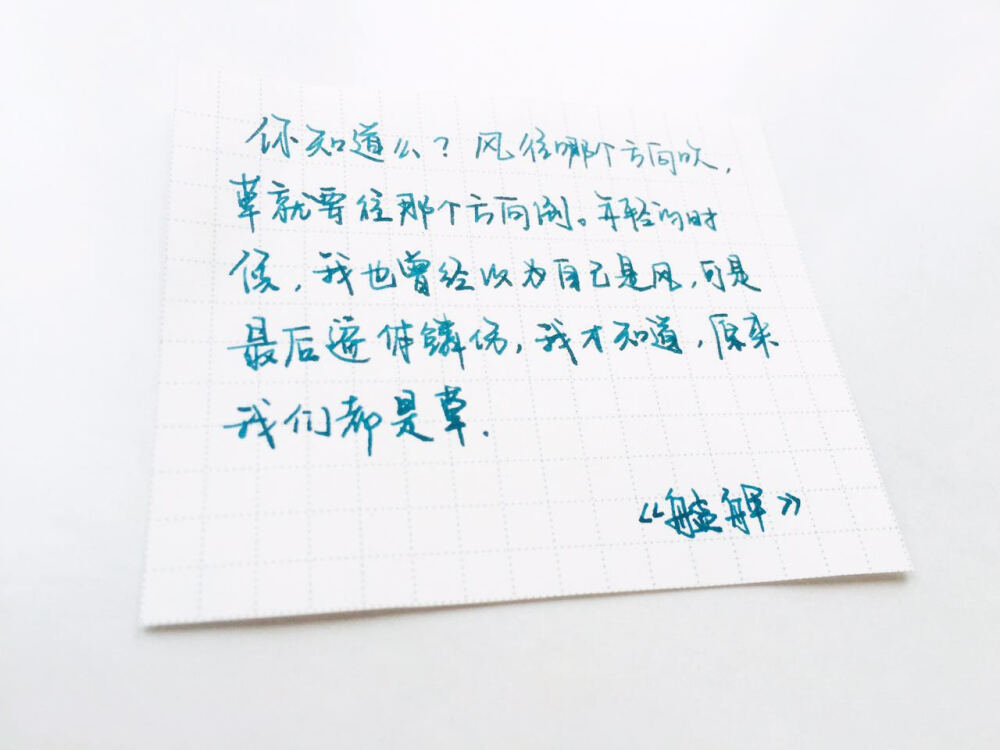 你知道么？风往哪个方向吹，
草就要往那个方向倒。年轻的时
候，我也曾经以为自己是风，可是
最后遍体鳞伤，我才知道，原来
我们都是草.
《艋舺》